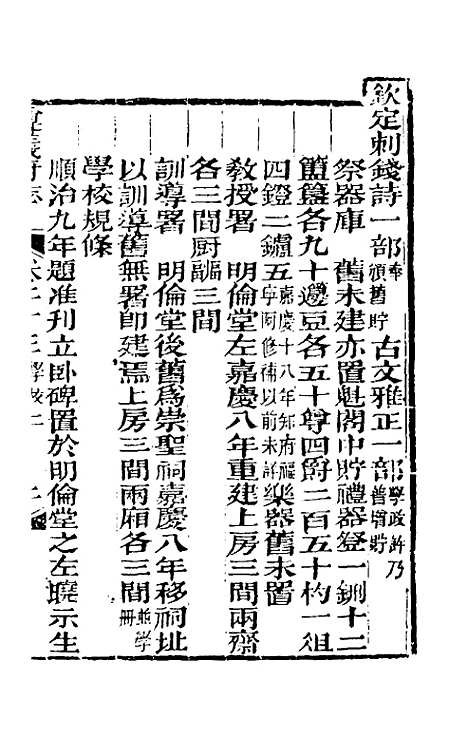 欽定刺錢詩一部奉頒舊貯 古文雅正一部學政許乃普增貯
祭器庫 舊未建亦置魁閣中貯禮器登一鉶十二
簠簋各九十籩豆各五十尊四爵二百五十杓一俎
四鐙二鑪五嘉慶十八年知府福寧阿修補以前未詳樂器舊未置
教授署 明倫堂左嘉慶八年重建上房三間兩齋
各三間厨福三間
訓導署 明倫堂後舊爲崇聖祠嘉慶八年移祠址
以訓導舊無署即建焉上房三間兩廂各三間並學冊
學校規條
順治九年題准刊立卧碑置於明倫堂之左曉示生
義府志 卷二十三 學校二